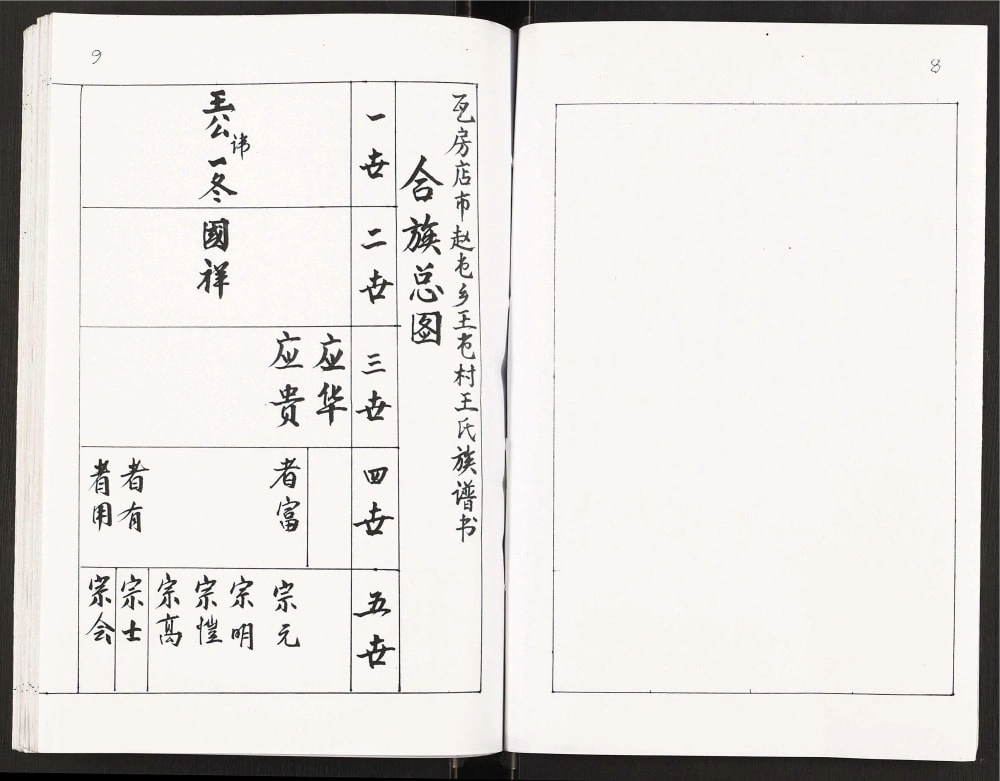 8
瓦房店市赵屯乡王屯村王氏族谱书
合族总图
一世
王公讳一冬
二世
國祥
三世
应华
应贵
四世
者富
者有
者用
五世
宗元
宗明
宗愷
宗高
宗士
宗会
9